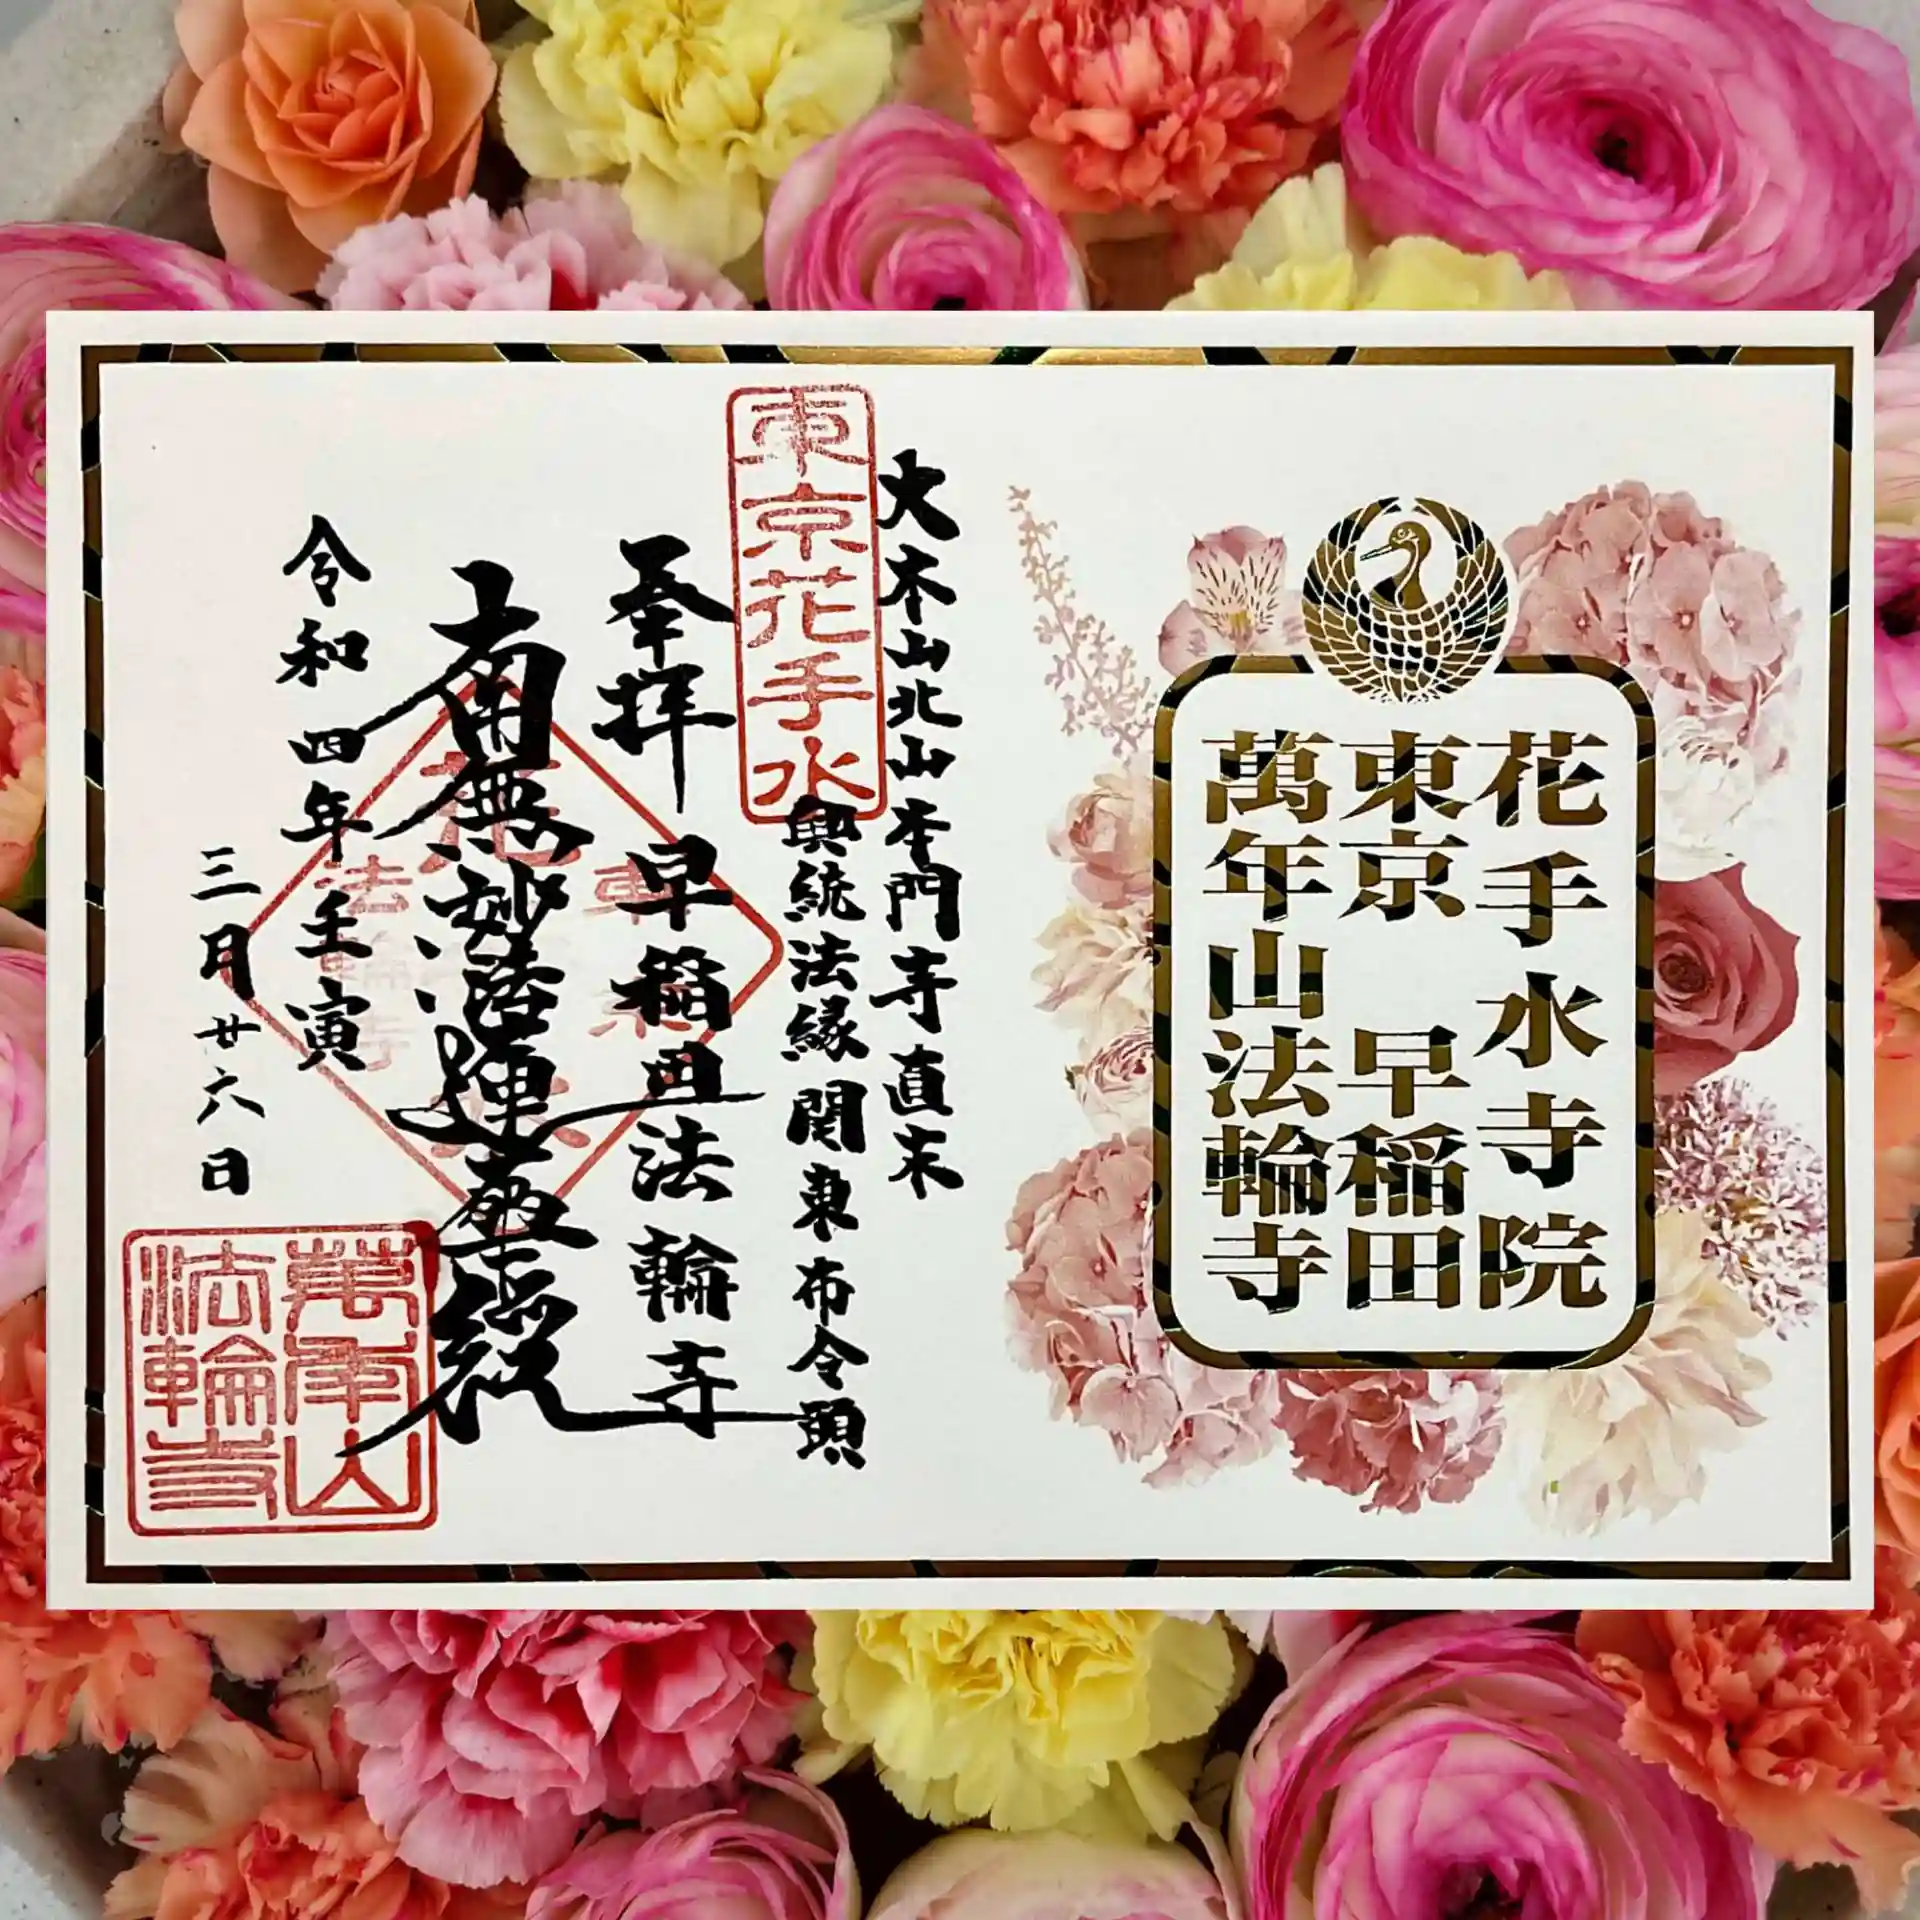 花手水寺院
東京 早稲田
萬年山法輪寺
大本山北山本門寺直末
興統法縁関東布令頭
東京花手水
奉拝 早稲田法輪寺
南無妙法蓮華経
令和四年壬寅
三月廿六日
萬年山
法輪寺